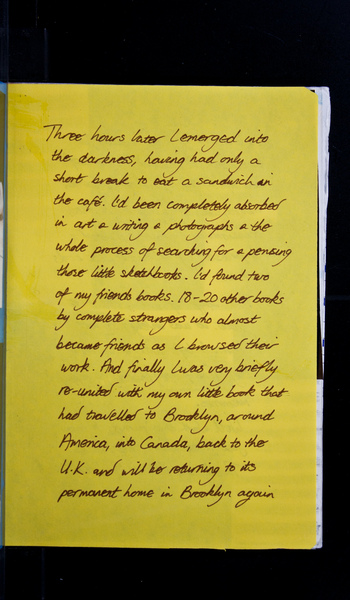 Three hours later I emerged into
the darkness, having had only a
short break to eat a sandwich in
the café. I'd been completely absorbed
in art & writing & photographs & the
whole process of searching for & perusing
those little sketchbooks. I'd found two
of my friends books. 18-20 other books
by complete strangers who almost
became friends as I browsed their
work. And finally I was very briefly
re-united with my own little book that
had travelled to Brooklyn, around
America, into Canada, back to the
U.K. and will be returning to its
permanent home in Brooklyn again